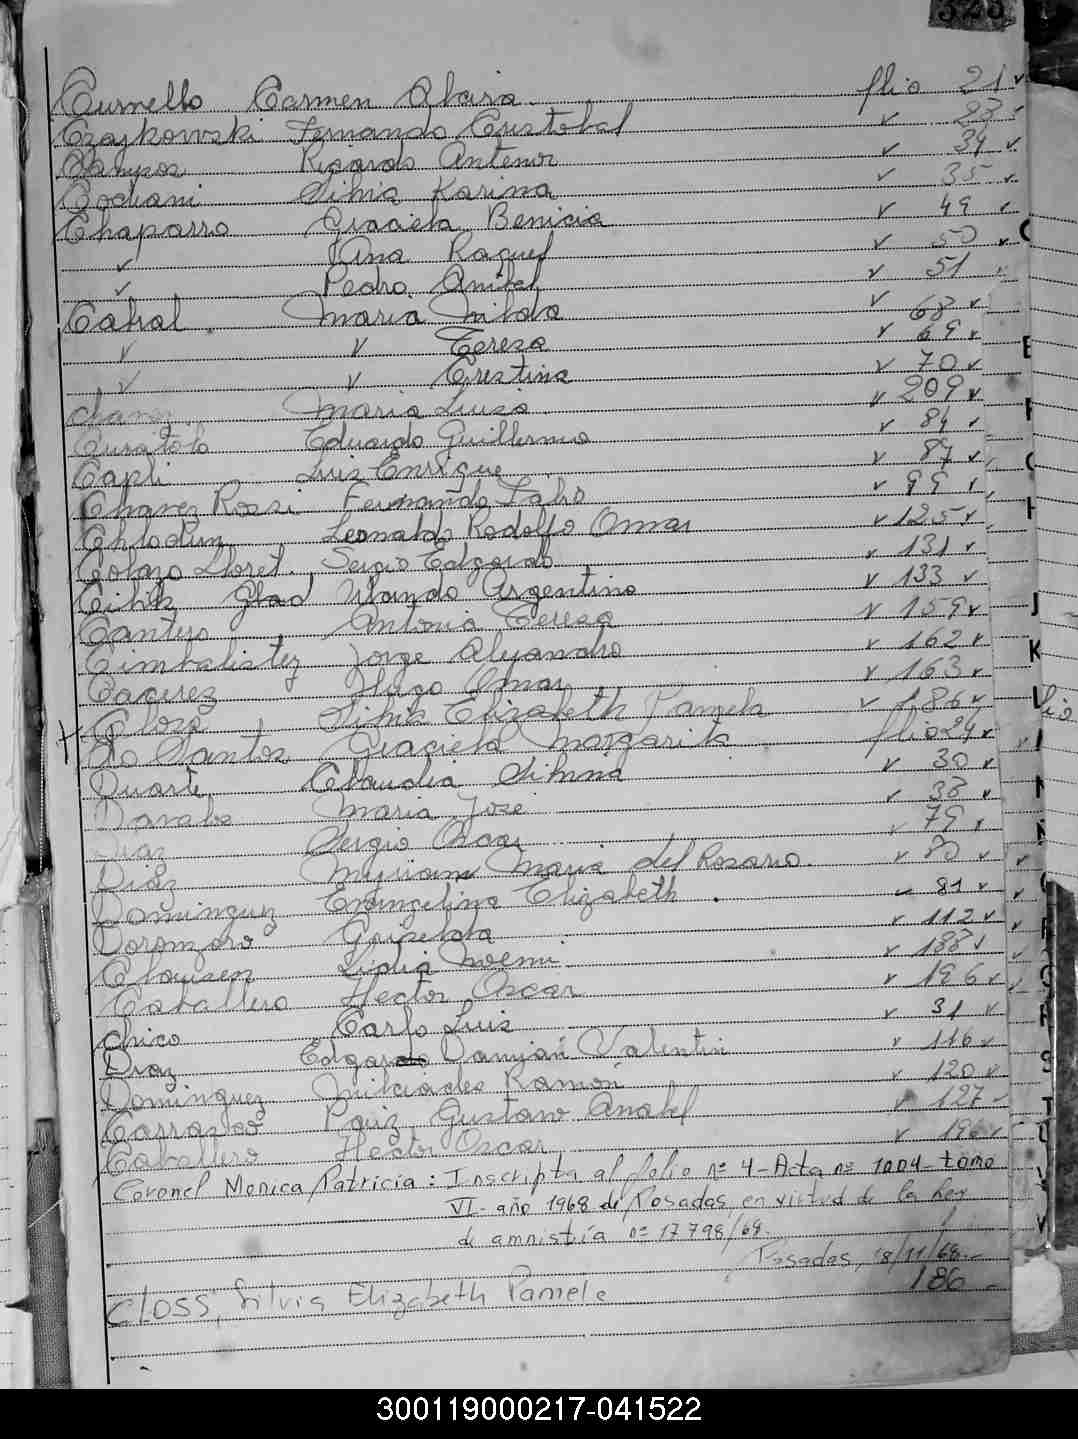 328
Curnello Carmen Alcira flio 21 v
Czajkowski Fernando Cristobal v 23
Campos Ricardo Antenor v 34 v
Cochani Silvia Karina v 35 v
Chaparro Graciela Benicia v 49 v
v Ana Raquel v 50 v
v Pedro Anibal v 51 v
Cabral Maria Nilda v 68 v
v v Teresa v 69 v
v v Cristina v 70 v
Chavez Maria Luisa v 209 v
Curatolo Eduardo Guillermo v 84 v
Capli Luis Enrique v 87 v
Chavez Rossi Fernando Fabio v 99 v
Leonardo Rodolfo Omar v 125 v
Colazo Lloret Sergio Edgardo v 131 v
Orlando Argentino v 133 v
Cantero Antonia Teresa v 159 v
Cimbalistez Jorge Alejandro v 162 v
Caceres Hugo Omar v 163 v
Closs Silvia Elizabeth Pamela v 186 v
Do Santos Graciela Margarita flio 24 v
Duarte Claudia Silvina v 30 v
Maria José v 38 v
Diaz Sergio Oscar v 79 v
Diaz Myriam Maria del Rosario v 80 v
Dominguez Evangelina Elizabeth v 81 v
Griselda v 112 v
Clausen Lidia Noemi v 188 v
Caballero Hector Oscar v 196 v
Chico Carlo Luis v 31 v
Diaz Edgardo Damján Valentin v 116 v
Dominguez Milciades Ramón v 120 v
Carrasco Gustavo Anabel v 127
Caballero Hector Oscar v 196 v
Coronel Monica Patricia: Inscripta al folio nº 4-Acta nº 1004-tomo
VI- año 1968 de Posadas, en virtud de la ley
de amnistía nº 17798/69.
Posadas, 18/11/68.-
CLOSS, Silvia Elizabeth Pamela 186
300119000217-041522